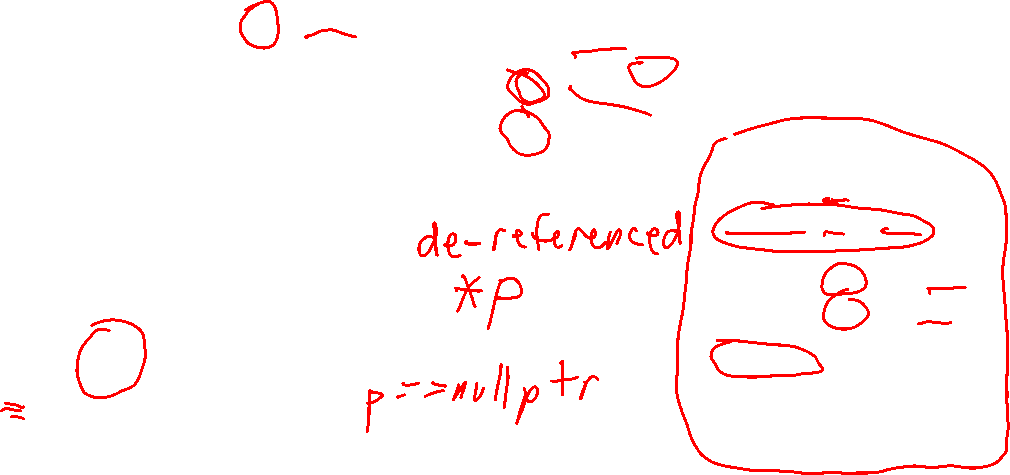 de-referenced
*p
p==nullptr